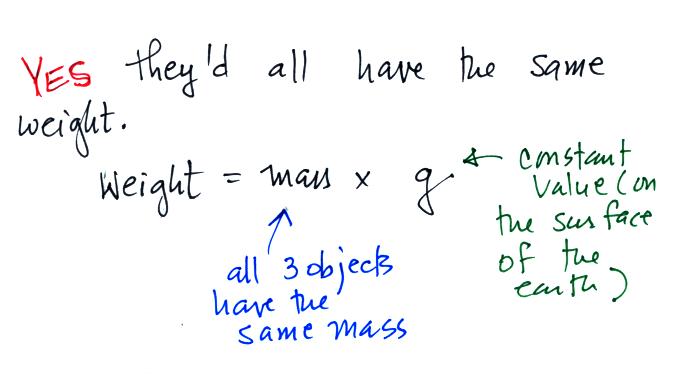 YES they'd all have the same
weight.
Weight = mass x g
constant
value (on
the surface
of the
earth)
all 3 objects
have the
same mass